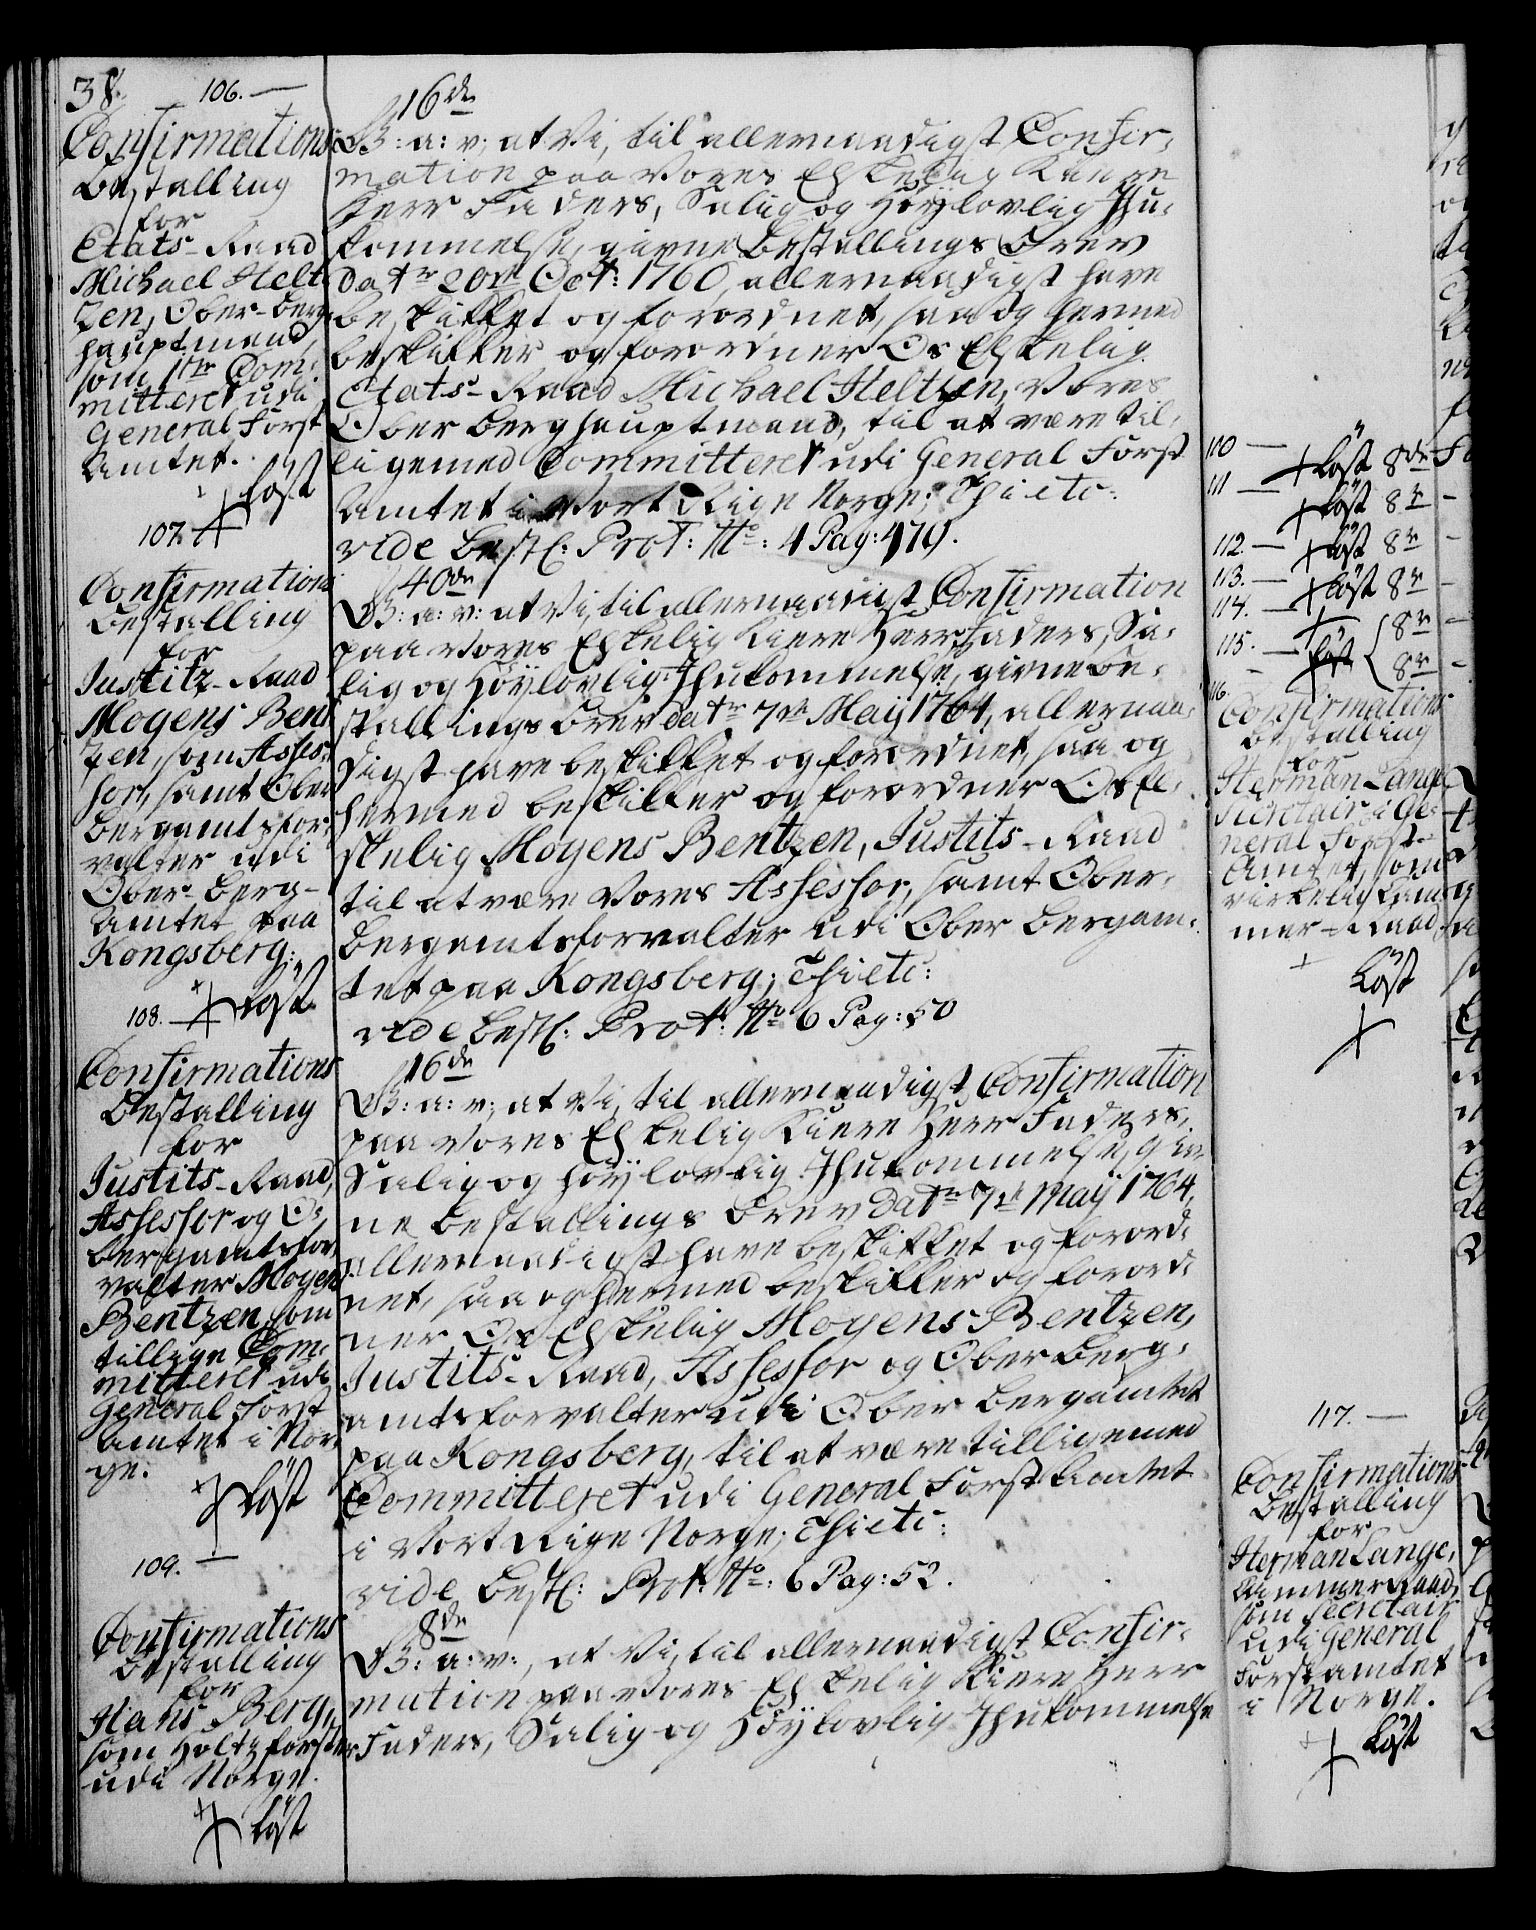 38.
106. —
Confirmations
Bestalling
for
Etats-Raad
Michael Helt
zen, Ober-Berg
hauptmand,
som 1ter Com-
mitteret udi
General Forst
Amtet.
+ Løst
16 dr
G: a: v: at Vi, til allernaadigst Confir-
mation paa Vores Elskelig Kiere
Herr Faders, Salig og Høylovlig Ihu-
kommelse, givne Bestallings Brev
Dat: 20de Oct: 1760, allernaadigst have
beskikket og forordnet, saa og hermed
beskikker og forordner Os Elskelig
Etats-Raad Michael Heltzen, Vores
Ober Berghauptmand, til at være til-
ligemed Committeret udi General Forst
Amtet i Vort Rige Norge; Thi etc:
vide Bestl: Prot: No: 4 Pag:
107.
Confirmations
Bestalling
for
Justitz-Raad
Mogens Bent
zen, som Asses-
sor, samt Ober
Bergamtsfor-
valter udi
Ober-Berg-
Amtet paa
Kongsberg.
+ Løst
40 dr
G: a: v: at Vi, til allernaadigst Confirmation
paa Vores Elskelig Kiere Herr Faders, Sa-
lig og Høylovlig Ihukommelse, givne Be-
stallings Brev dat: 7de May 1764, allernaa-
digst have beskikket og forordnet, saa og
hermed beskikker og forordner Os El-
skelig Mogens Bentzen, Justits-Raad
til at være Vores Assessor, samt Ober-
Bergamtsforvalter udi Ober Bergam-
tet paa Kongsberg; Thi etc:
vide Bestl: Prot: No 6 Pag: 50
108. —
Confirmations
Bestalling
for
Justits-Raad,
Assessor og O-
ber Bergamtsfor-
valter Mogens
Bentzen, som
tillige Com-
mitteret udi
General Forst
Amtet i Nor-
ge.
+ Løst
16 dr
G: a: v: at Vi, til allernaadigst Confirmation
paa Vores Elskelig Kiere Herr Faders,
Salig og Høylovlig Ihukommelse, giv-
ne Bestallings Brev dat: 7de May 1764,
allernaadigst have beskikket og forord-
net, saa og hermed beskikker og forord-
ner Os Elskelig Mogens Bentzen,
Justits-Raad, Assessor og Ober Berg-
amtsforvalter udi Ober Bergamtet
paa Kongsberg, til at være tilligemed
Committeret udi General Forst Amtet
i Vort Rige Norge; Thi etc:
vide Bestl: Prot: No: 6 Pag: 52.
109. —
Confirmations
Bestalling
for
Hans Berg,
som Holtzforster
udi Norge.
+ Løst
8 dr
G: a: v:, at Vi, til allernaadigst Confir-
mation paa Vores Elskelig Kiere Herr
Faders, Salig og Høylovlig Ihukommelse
110 — + Løst 8 dr
111 — + Løst 8 r —
112. — + Løst 8 r —
113. — + Løst 8 r —
114. — + 8 r —
115. — Løst 8 r —
116.
Confirmations
Bestalling
for
Herman Lange,
Secretair i Ge-
neral Forst-
Amtet, som
virkelig Cam-
mer-Raad
+ Løst
117. —
Confirmations
Bestalling
for
Herman Lange,
Cammerraad,
som Secretair
udi General
Forstamtet
i Norge.
+ Løst